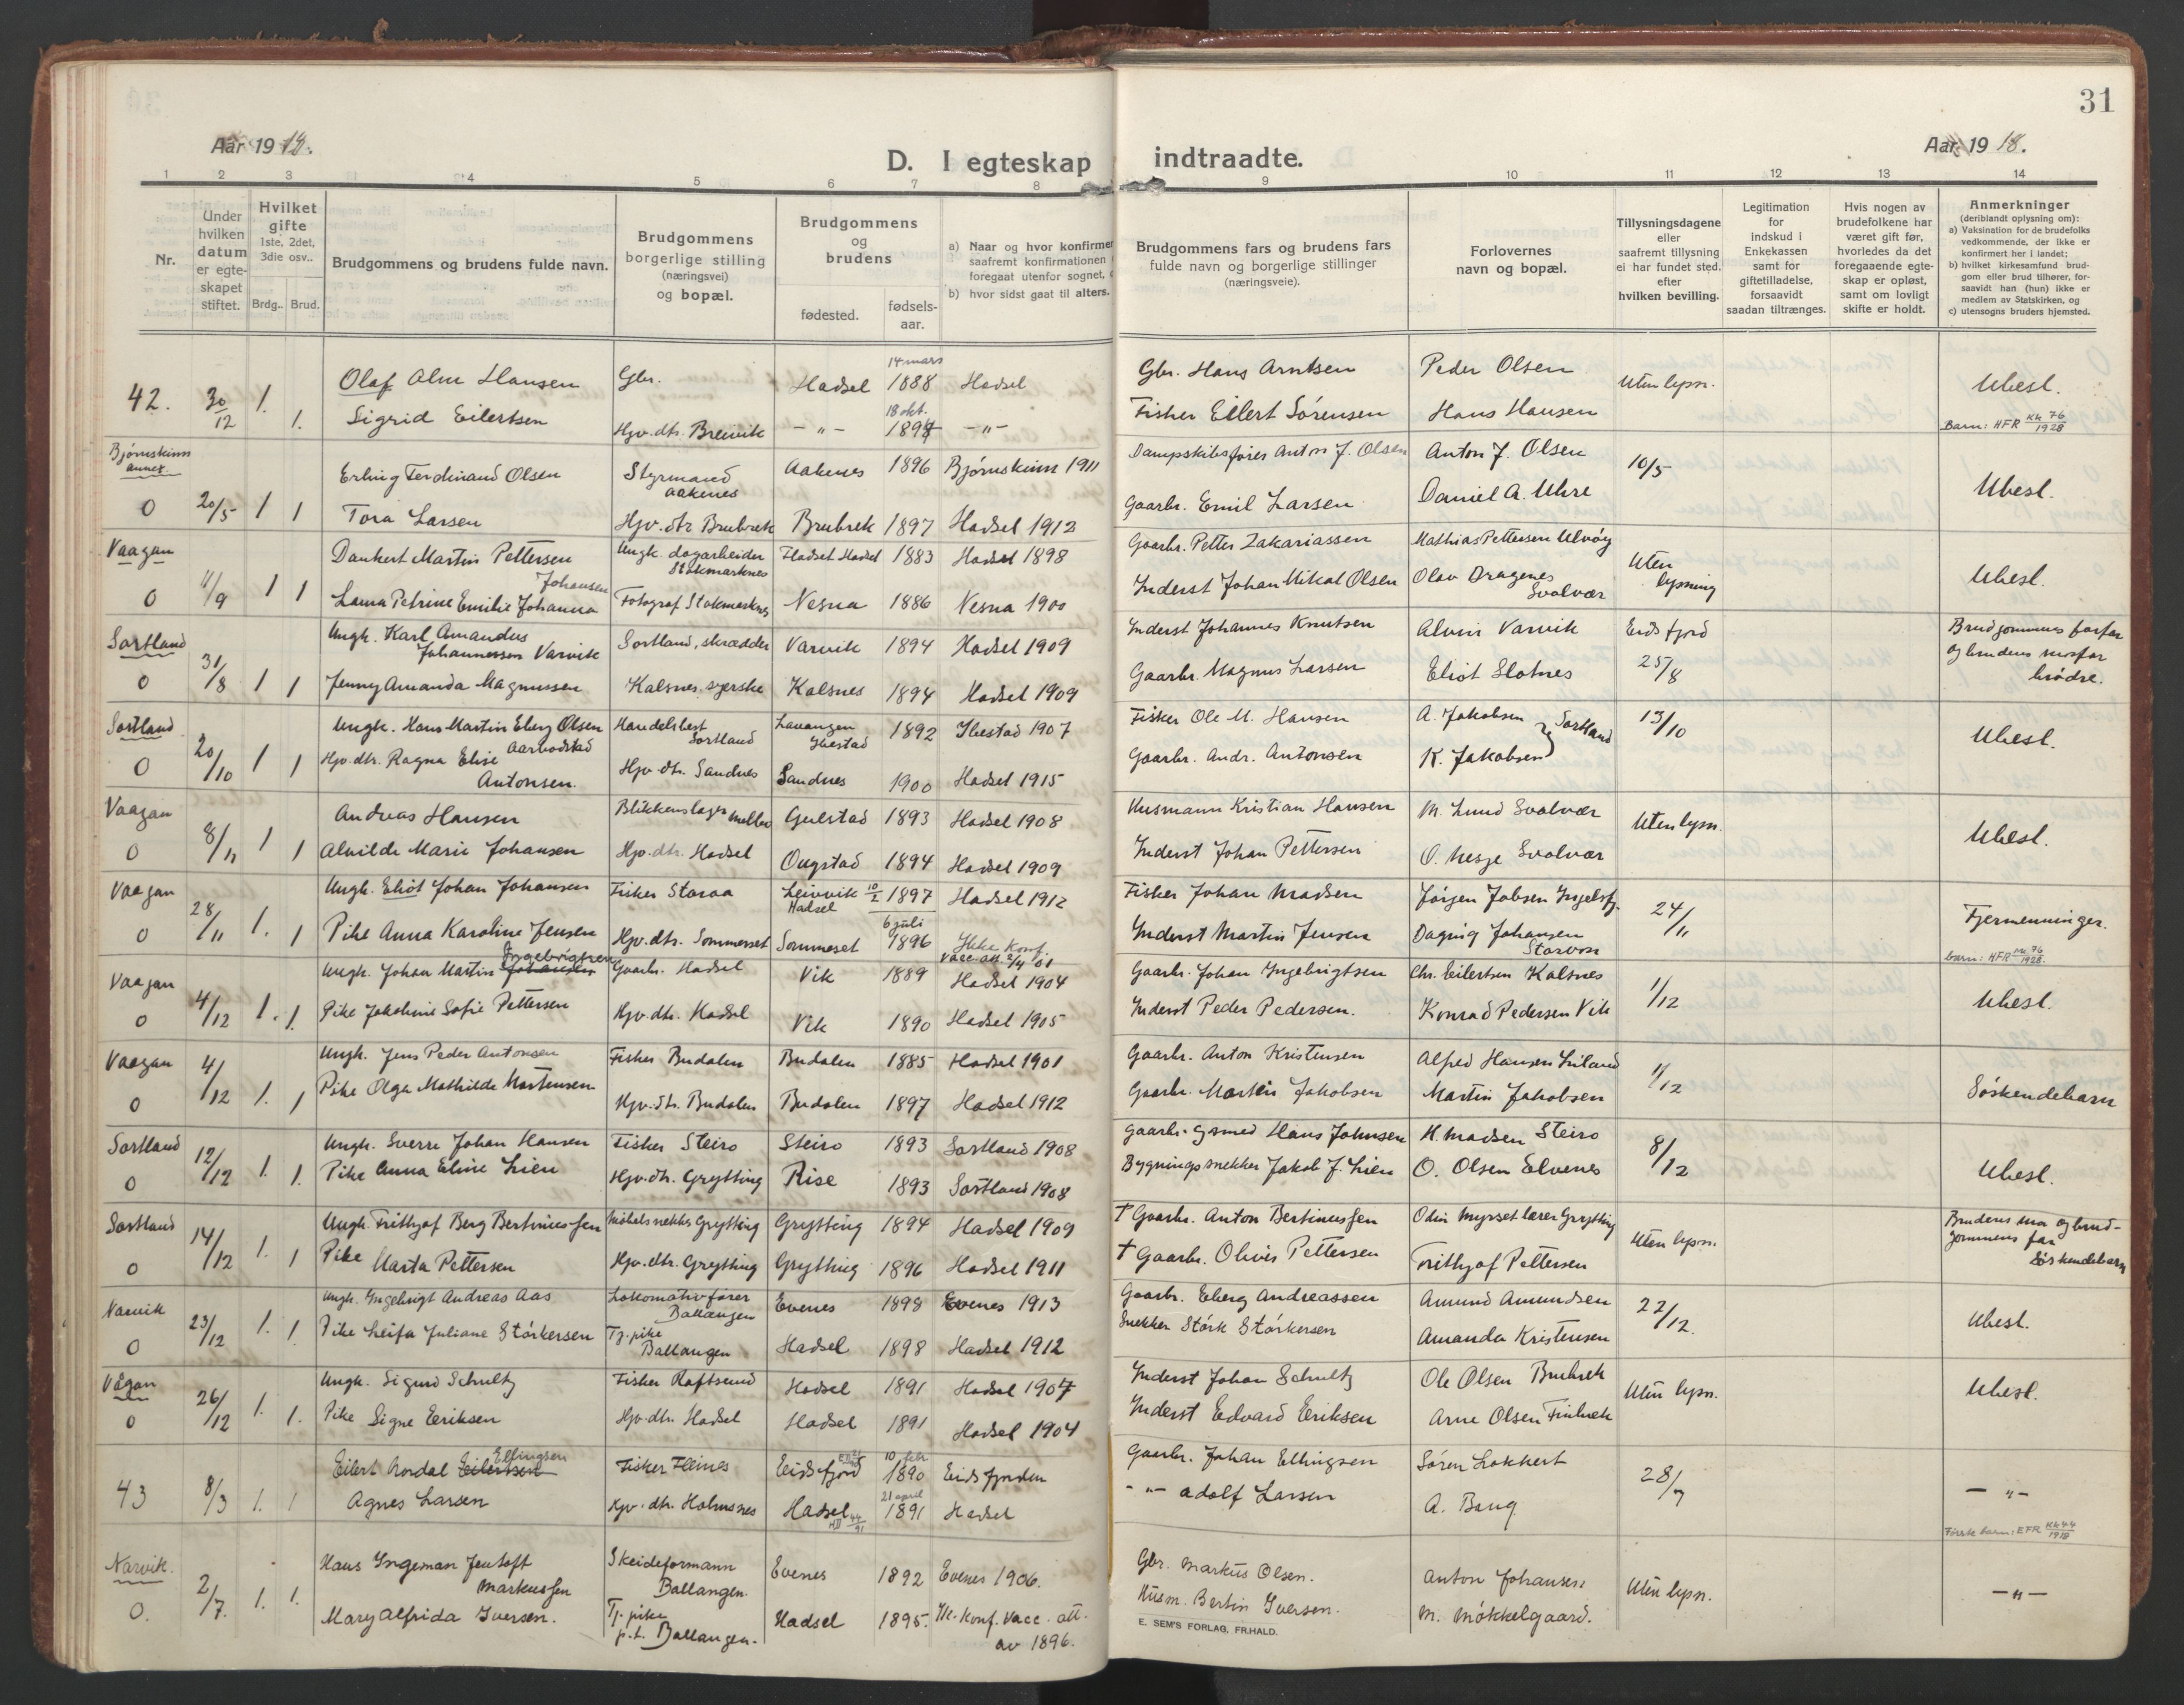 31
Aar 1918.
D. I egteskap indtraadte.
Aar 1918.
1 2 3 4 5 6 7 8 9 10 11 12 13 14
Nr.
Under hvilken datum er egteskapet stiftet.
Hvilket gifte 1ste, 2det, 3die osv..
Brdg.. Brud.
Brudgommens og brudens fulde navn.
Brudgommens borgerlige stilling (næringsvei) og bopæl.
Brudgommens og brudens
fødested. fødselsaar.
a) Naar og hvor konfirmer
saafremt konfirmationen
foregaat utenfor sognet,
b) hvor sidst gaat til alters.
Brudgommens fars og brudens fars
fulde navn og borgerlige stillinger
(næringsveie).
Forlovernes
navn og bopæl.
Tillysningsdagene
eller
saafremt tillysning
ei har fundet sted.
efter
hvilken bevilling.
Legitimation
for
indskud i
Enkekassen
samt for
giftetilladelse,
forsaavidt
saadan tiltrænges.
Hvis nogen av
brudefolkene har
været gift før,
hvorledes da det
foregaaende egte-
skap er opløst,
samt om lovligt
skifte er holdt.
Anmerkninger
(deriblandt oplysning om):
a) Vaksination for de brudefolks
vedkommende, der ikke er
konfirmert her i landet;
b) hvilket kirkesamfund brud-
gom eller brud tilhører, for-
saavidt han (hun) ikke er
medlem av Statskirken, og
c) utensogns bruders hjemsted.
42. 30/12 1. Olaf Alm Hansen Gbr. Hadsel 14 mars 1888 Hadsel Gbr. Hans Arntsen Peder Olsen Uten lysn. Ubesl.
1. Sigrid Eilertsen Hjv.dtr. Breivik -"- 18 okt. 1894 -"- Fisker Eilert Sørensen Hans Hansen Barn: HFR Kk 76/1928
Bjørnskinn annex
Erling Ferdinand Olsen Styrmand Aakenes Aakenes 1896 Bjørnskinn 1911 Dampskibsfører Anton J. Olsen Anton J. Olsen 10/5 Ubesl.
0 20/5 1 1 Tora Larsen Hjv.dtr Brubrek Brubrek 1897 Hadsel 1912 Gaarbr. Emil Larsen Daniel A. Uhre
Vaagan Dankert Martin Pettersen Ungk. dagarbeider Stokmarknes Hadsel 1883 Hadsel 1898 Gaarbr. Petter Zakariassen Mathias Pettersen Ulvøy Uten lysning Ubesl.
0 11/9 1 1 Laura Petrine Emilie Johanna Johansen Fotograf Stokmarknes Nesna 1886 Nesna 1900 Inderst Johan Mikal Olsen Olav Dragenes Svolvær
Sortland Ungk. Karl Amandus Johannessen Varvik Sortland, skrædder Varvik 1894 Hadsel 1909 Inderst Johannes Knutsen Alvin Varvik Eidsfjord 25/8 Brudgommens farfar og brudens morfar brødre.
0 31/8 1 1 Jenny Amanda Magnussen Kalsnes, syerske Kalsnes 1894 Hadsel 1909 Gaarbr. Magnus Larsen Eliot Slotnes
Sortland Ungk. Hans Martin Eberg Olsen Aarbodstad Handelsbest Sortland Lavangen Ibestad 1892 Ibestad 1907 Fisker Ole M. Hansen A. Jakobsen Sortland 13/10 Ubesl.
0 20/10 1 1 Hjv.dtr. Ragna Elise Antonsen. Hjv.dtr. Sandnes Sandnes 1900 Hadsel 1915 Gaarbr. Andr. Antonsen K. Jakobsen
Vaagan Andreas Hansen Blikkenslager Melbo Gulstad 1893 Hadsel 1908 Husmann Kristian Hansen M. Lund Svolvær Uten lysn. Ubesl.
0 8/11 1 1 Alvilde Marie Johansen Hjv.dtr. Hadsel Ongstad 1894 Hadsel 1909 Inderst Johan Pettersen O. Nesje Svolvær
Vaagan Ungk. Eliot Johan Johansen Fisker Storaa Leirvik Hadsel 10/2 1897 Hadsel 1912 Fisker Johan Madsen Jørgen Jobsen Ingelsfj. 24/11 Fjermenninger.
0 28/11 1. 1 Pike Anna Karoline Jensen Hjv.dtr. Sommerset Sommeset 6 juli 1896 Ikke konf. Vacc. att 2/4 01 Inderst Martin Jensen Dagny Johansen Barn: HFR Kk 76/1928.
Vaagan Ungk. Johan Martin Johansen Ingebrigtsen Gaarbr. Hadsel Vik 1889 Hadsel 1904 Gaarbr. Johan Ingebrigtsen Chr. Eilertsen Kalsnes 1/12 Ubesl.
0 4/12 1. 1. Pike Jakobine Sofie Pettersen Hjv.dtr. Hadsel Vik 1890 Hadsel 1905 Inderst Peder Pedersen. Konrad Pedersen Vik
Vaagan 4/12 Ungk. Jens Peder Antonsen Fisker Budalen Budalen 1885 Hadsel 1901 Gaarbr. Anton Kristensen Alfred Hansen 1/12 Søskendebarn
0 1. 1 Pike Olga Mathilde Martensen Hjv.dtr. Budalen Budalen 1897 Hadsel 1912 Gaarbr. Martin Jakobsen Martin Jakobsen
Sortland Ungk. Sverre Johan Hansen Fisker Steiro Steiro 1893 Sortland 1908 Gaarbr. og smed Hans Johnsen H. Madsen Steiro 8/12 Ubesl.
0 12/12 1. 1. Pike Anna Eline Lien Hjv.dtr. Grytting Rise 1893 Sortland 1908 Bygningssnekker Jakob J. Lien O. Olsen Elvenes
Sortland Ungk. Frithjof Berg Bertinussen Møbelsnekker Grytting Grytting 1894 Hadsel 1909 † Gaarbr. Anton Bertinussen Odin Myrset lærer Grytting Uten lysn. Brudens mor og brudgommens far Søskendebarn
0 14/12 1. 1 Pike Marta Pettersen Hjv.dtr. Grytting Grytting 1896 Hadsel 1911 † Gaarbr. Olivis Pettersen Frithjof Pettersen
Narvik Ungk. Ingebrigt Andreas Aas Lokomotivfører Ballangen Evenes 1898 Evenes 1913 Gaarbr. Eberg Andreassen Amund Amundsen 22/12. Ubesl.
0 23/12 1. 1. Pike Leifa Juliane Størkersen Tj.pike Ballangen Hadsel 1898 Hadsel 1912 Snekker Størk Størkersen Amanda Kristensen
Vågan Ungk. Sigurd Schultz Fisker Raftsund Hadsel 1891 Hadsel 1907 Inderst Johan Schultz Ole Olsen Brubrek Uten lysn. Ubesl.
0 26/12 1. 1. Pike Signe Eriksen Hjv.dtr Hadsel Hadsel 1891 Hadsel 1904 Inderst Edvard Eriksen Arne Olsen
43 8/3 1. 1 Eilert Nordal Eilertsen Ellingsen Fisker Fleines Eidsfjord 10 febr 1890 Eidsfjorden Gaarbr. Johan Ellingsen Søren Lokkert 28/7 -"-
Agnes Larsen Hjv.dtr Holmsnes Hadsel 21 april 1891 Hadsel -"- Adolf Larsen A. Bang Første barn: EFR Kk 44/1918
Narvik. Hans Ingeman Jentoft Markussen Skeideformann Ballangen. Evenes 1892 Evenes 1906. Gbr. Markus Olsen. Anton Johansen Uten lysn. -"-
0. 2/7. 1. 1. Mary Alfrida Iversen. Tj.pike p.t. Ballangen. Hadsel 1895. Ik. konf. Vacc. att. av 1896. Husm. Bertin Iversen. M. Møkkelgaard.
E. SEM'S FORLAG, FR.HALD.